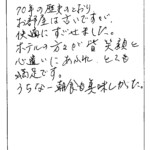 70年の歴史のとおり
お部屋は古いですが、
快適にすごせました。
ホテルの方々が皆笑顔と
心遣いにあふれ とても
満足です。
うちなー朝食も美味しかった。